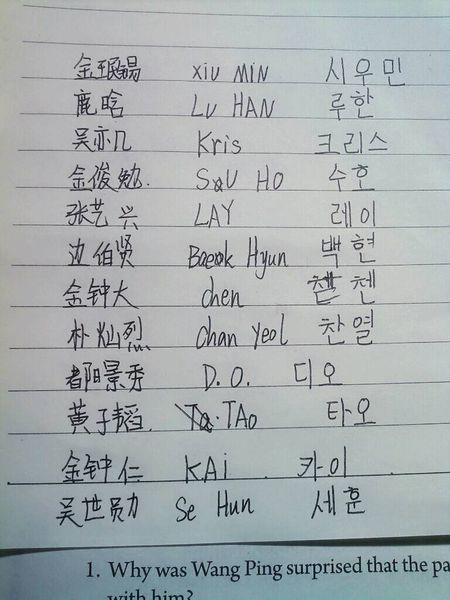 金珉锡 XIU MIN 시우민
鹿晗 LU HAN 루한
吴亦凡 Kris 크리스
金俊勉. SU HO 수호
张艺兴 LAY 레이
边伯贤 Baek Hyun 백현
金钟大 chen 첸
朴灿烈 chan yeol 찬열
都暻秀 D.O. 디오
黄子韬. TAO 타오
金钟仁 KAi 카이
吴世勋 Se Hun 세훈
1. Why was Wang Ping surprised that the pa
with him?